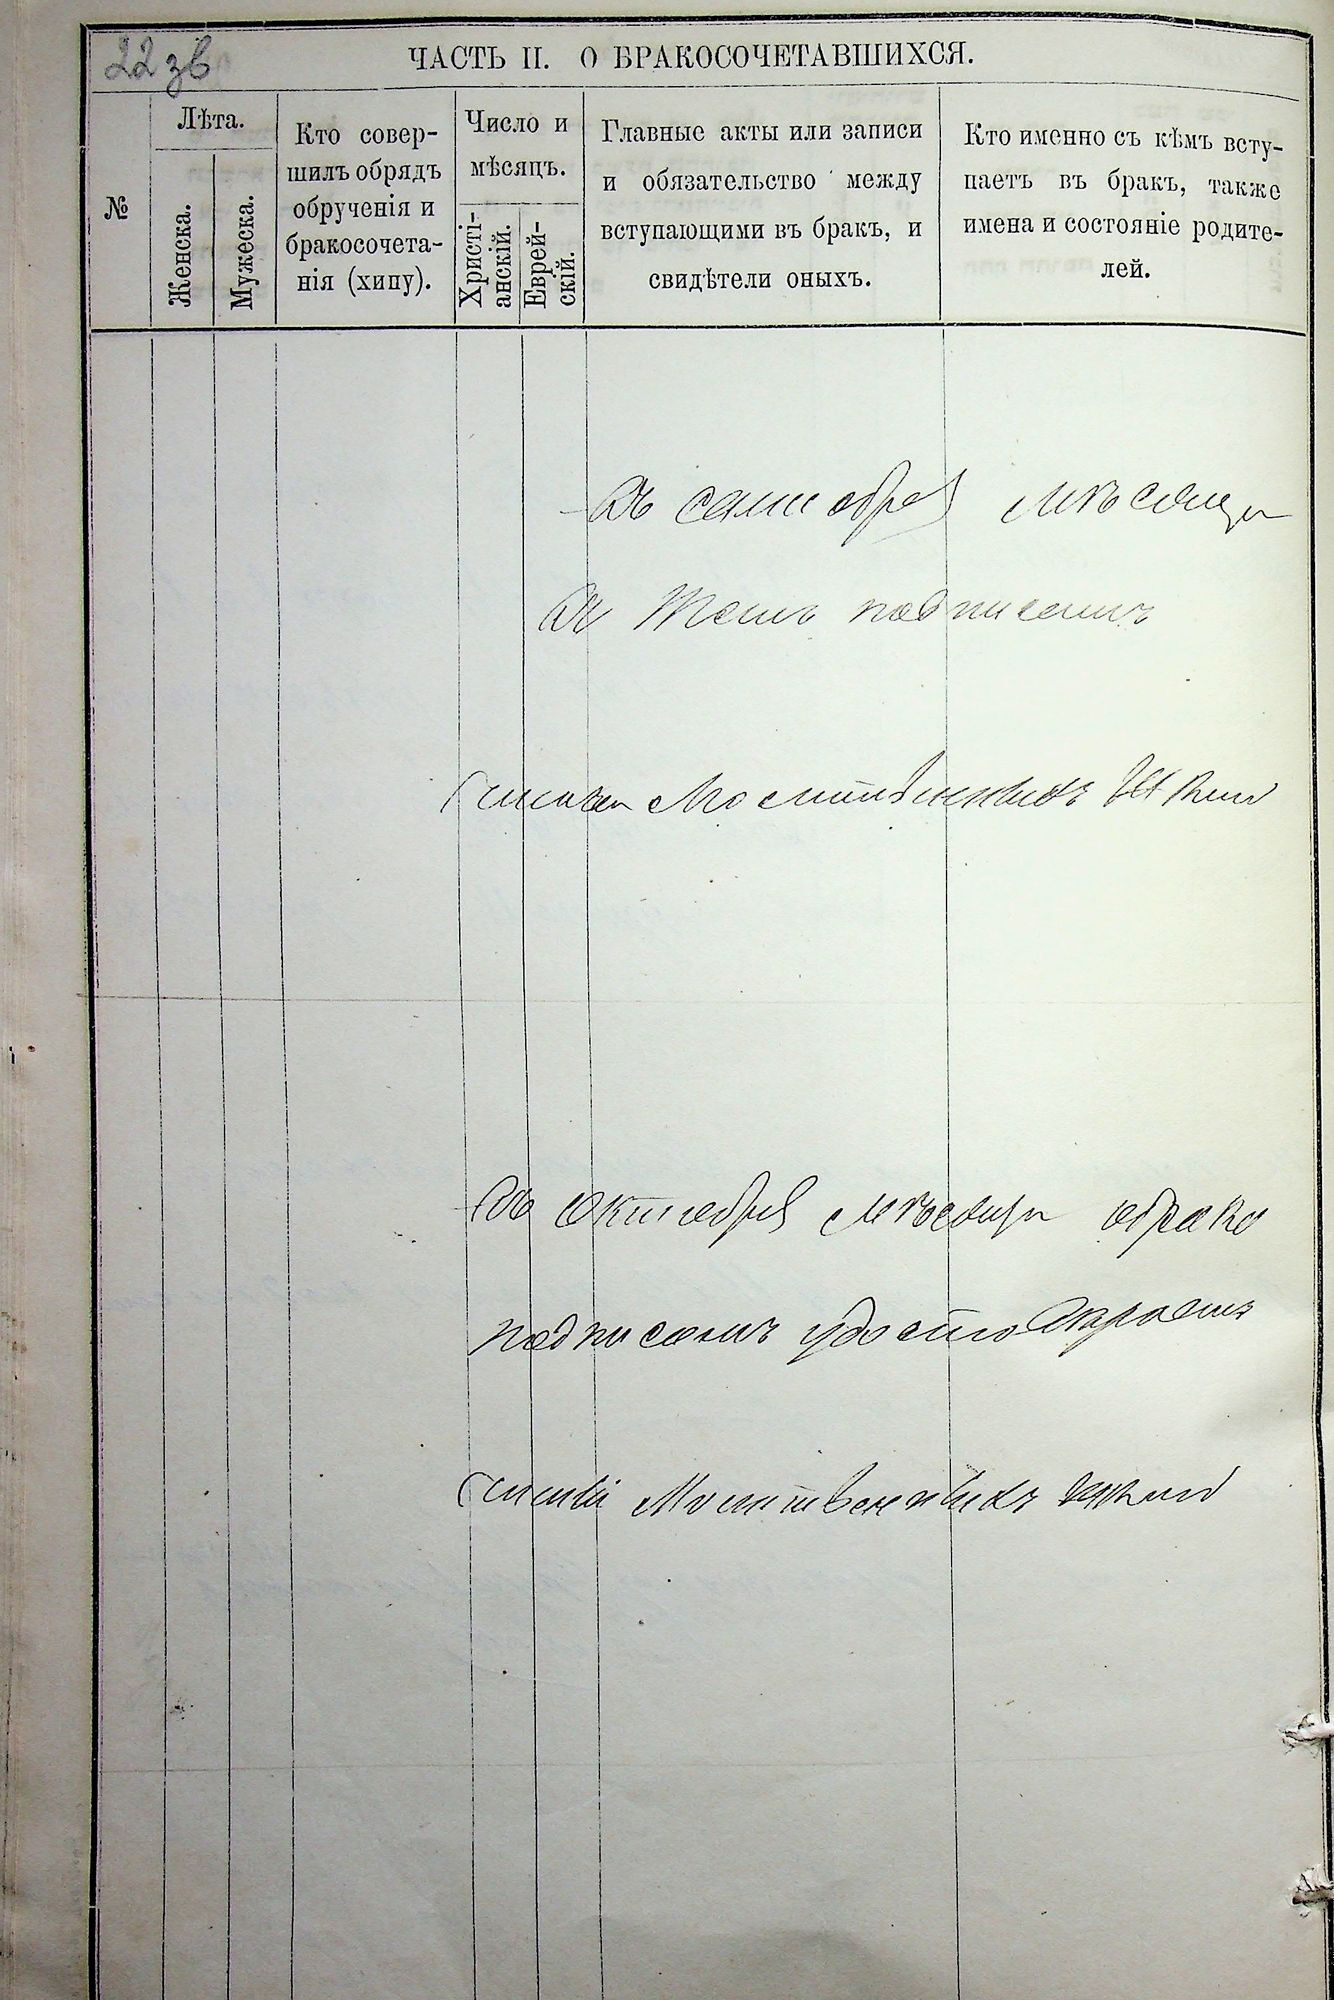 22 зв
ЧАСТЬ II. О БРАКОСОЧЕТАВШИХСЯ.
№
Лѣта.
Женска.
Мужеска.
Кто совер-
шилъ обрядъ
обрученія и
бракосочета-
нія (хипу).
Число и
мѣсяцъ.
Христі-
анскій.
Еврей-
скій.
Главные акты или записи
и обязательство между
вступающими въ бракъ, и
свидѣтели оныхъ.
Кто именно съ кѣмъ всту-
паетъ въ бракъ, также
имена и состояніе родите-
лей.
Въ сентебрѣ мѣсеце
въ темъ подписемъ
въ октебрѣ мѣсеце
подписемъ удостовѣраемъ